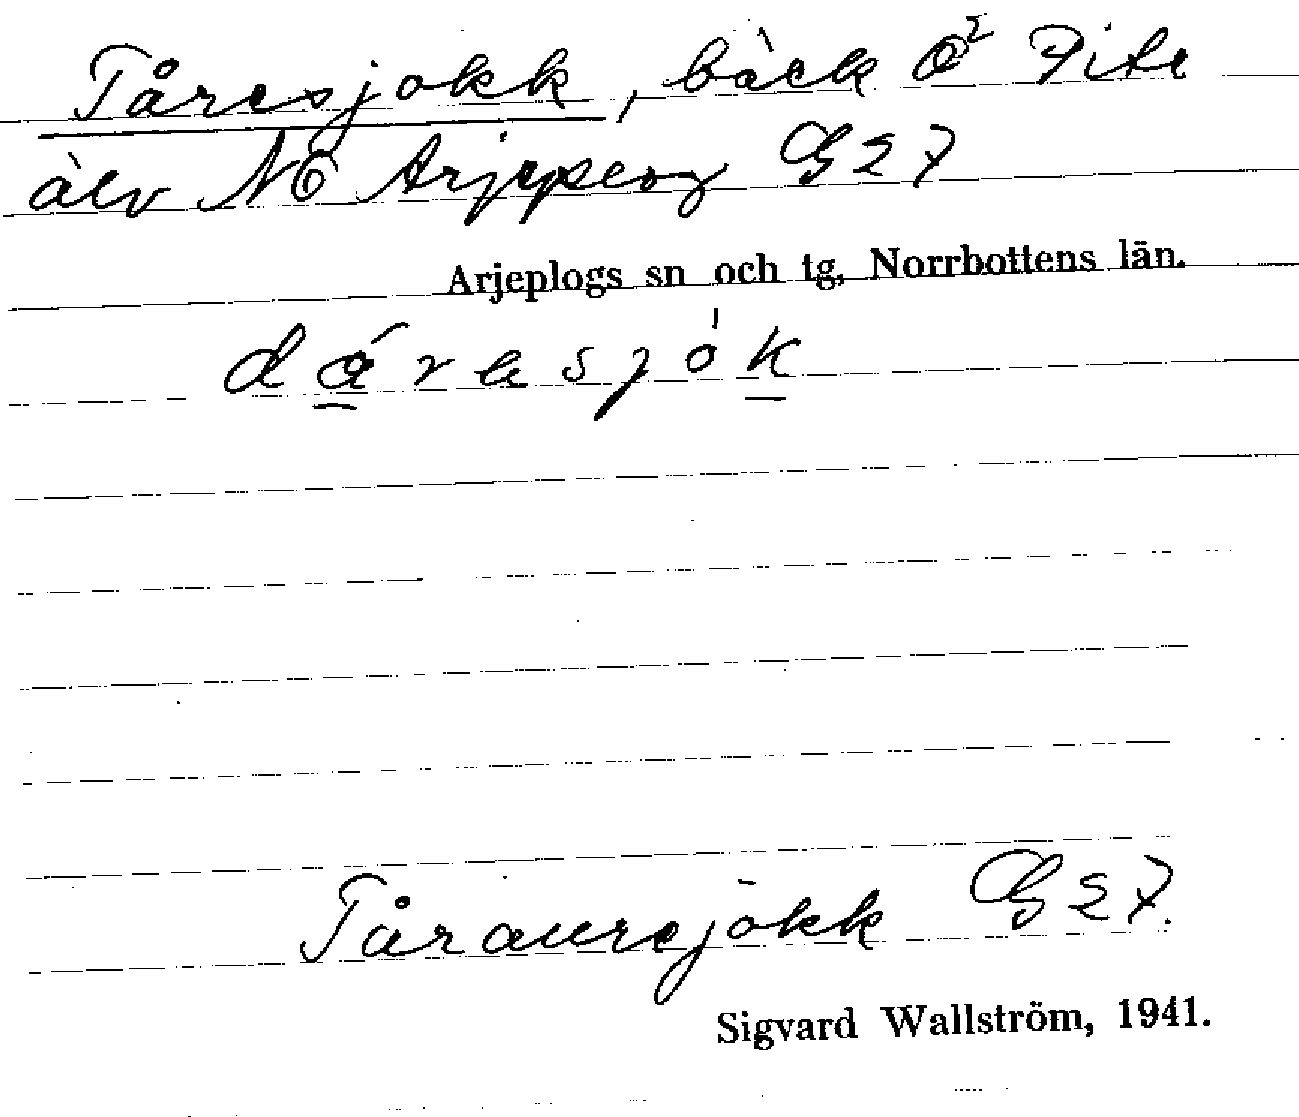 Tåresjokk, bäck Ö² Pite
älv NÖ Arjeplog G27
Arjeplogs sn och tg, Norrbottens län.
dáresjȯk
Tåraurejokk G27.
Sigvard Wallström, 1941.